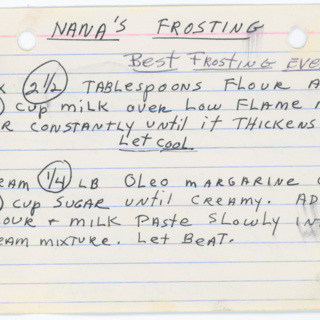 NANA'S FROSTING
Best Frosting Eve
2½ TABLESPOONS FLOUR A
CUP MILK OVER LOW FLAME
CONSTANTLY UNTIL IT THICKENS
Let cool
EAM ¼ LB OLEO MARGARINE
CUP SUGAR UNTIL CREAMY. AD
OUR + MILK PASTE SLOWLY IN
EAM MIXTURE. LET BEAT.